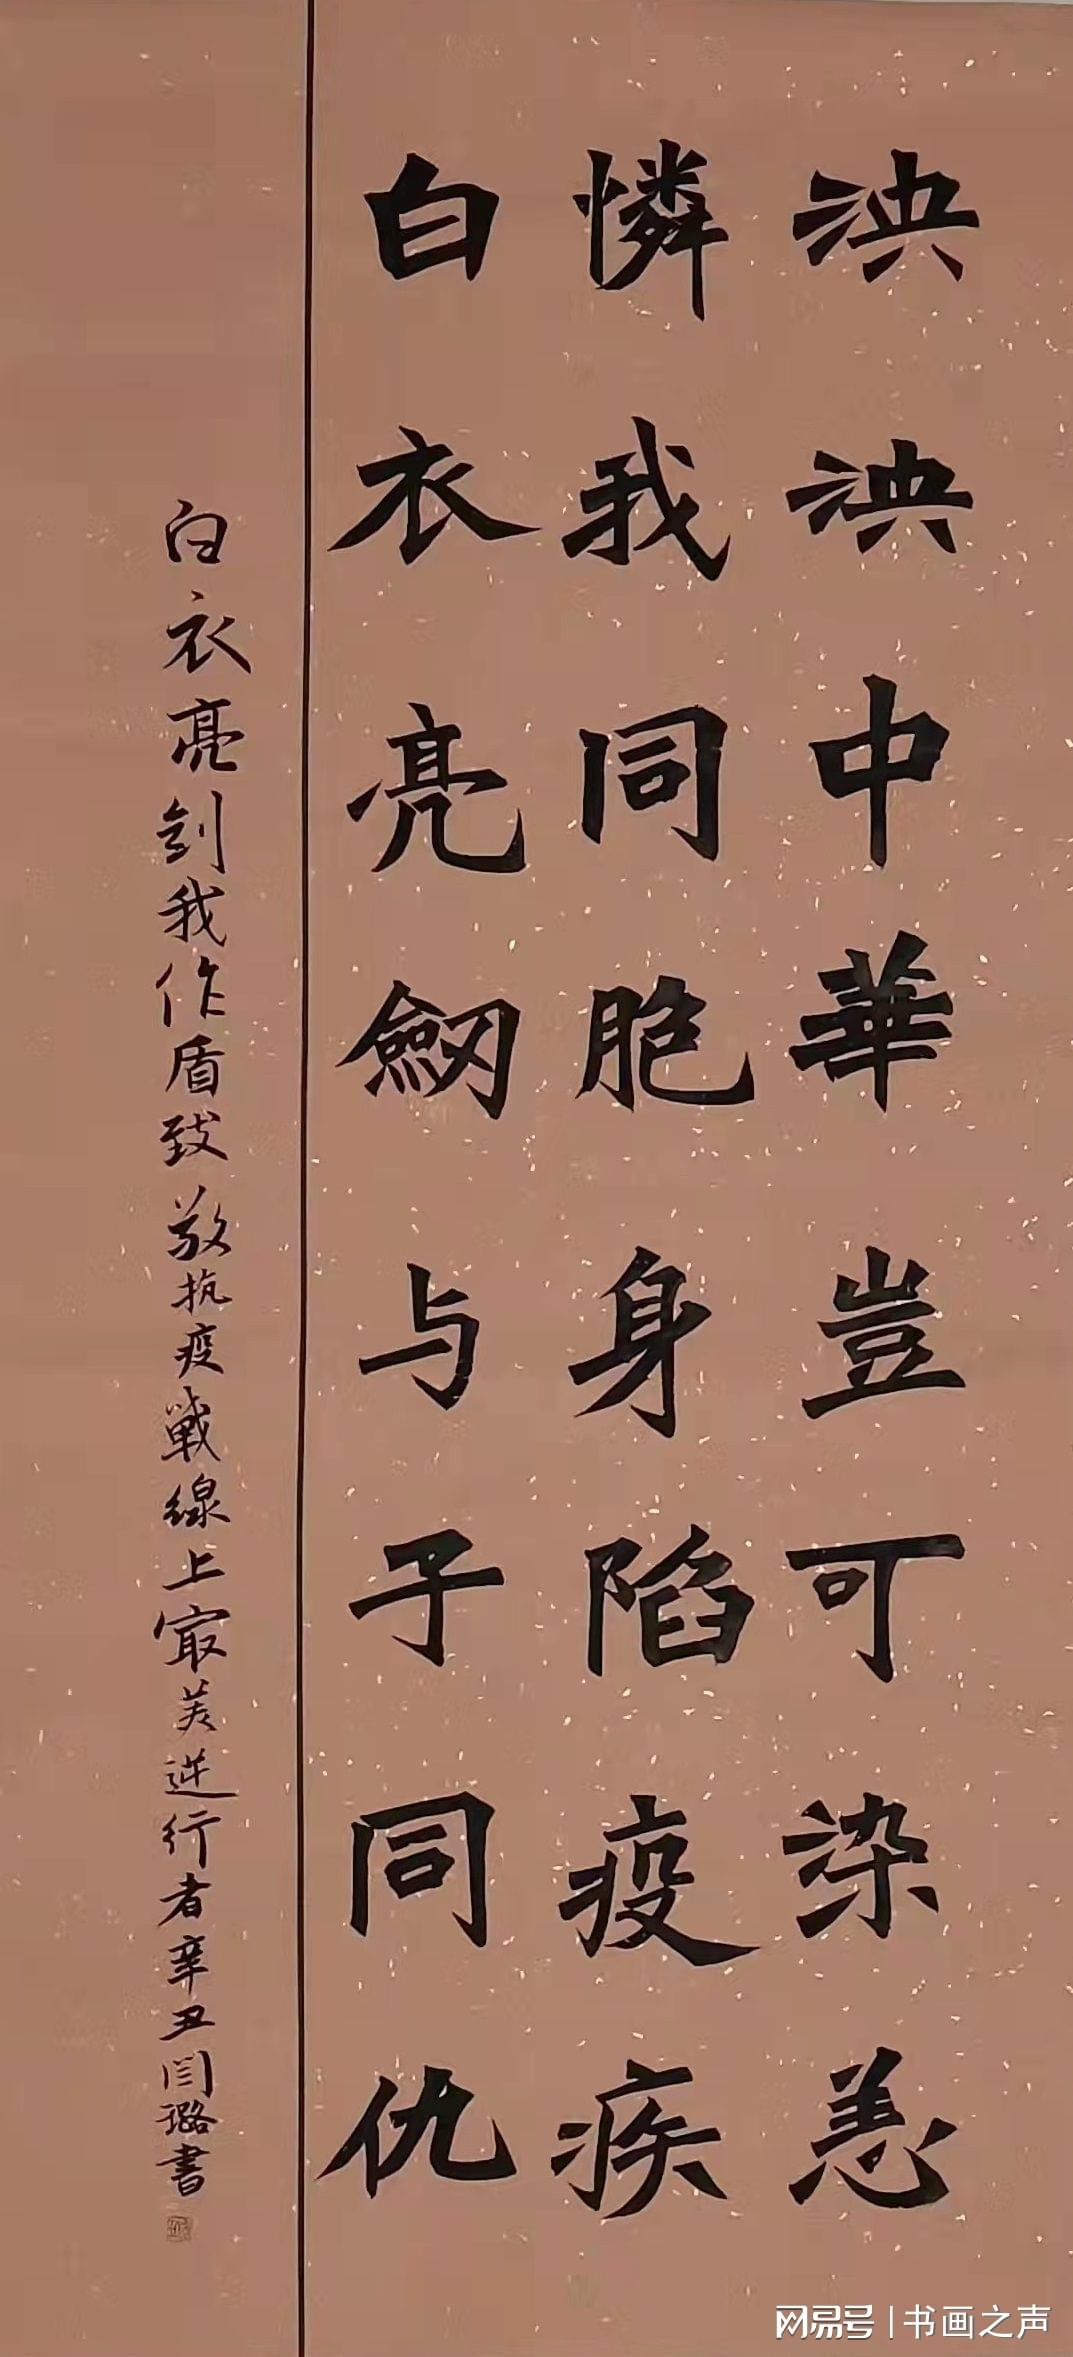 泱泱中華豈可染恙
憐我同胞身陷疫疾
白衣亮劔与子同仇
白衣亮剑我作盾致敬抗疫戰線上最美逆行者辛丑闫璐書
网易号 | 书画之声